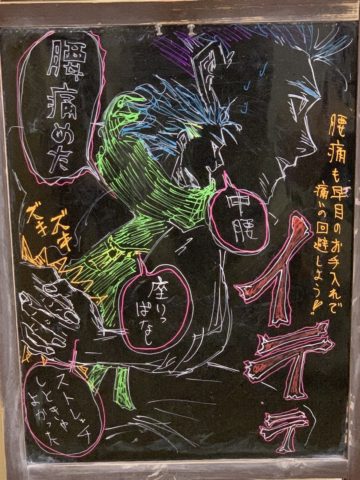 腰痛めた
腰痛も早目のお手入れで
痛いの回避しよう!!
中腰
イテテテ
ズキズキ
座りっ
ぱなし
ストレッチ
しときゃ
よかった